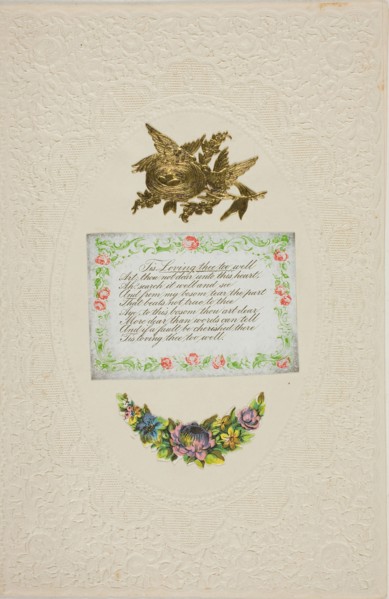 Tis Loving thee too well
Art thou not dear unto this heart
Ah search it well and see
And from my bosom tear the part
That beats not true to thee
Aye to this bosom thou art dear
More dear than words can tell
And if a fault be cherished there
Tis loving thee too well.